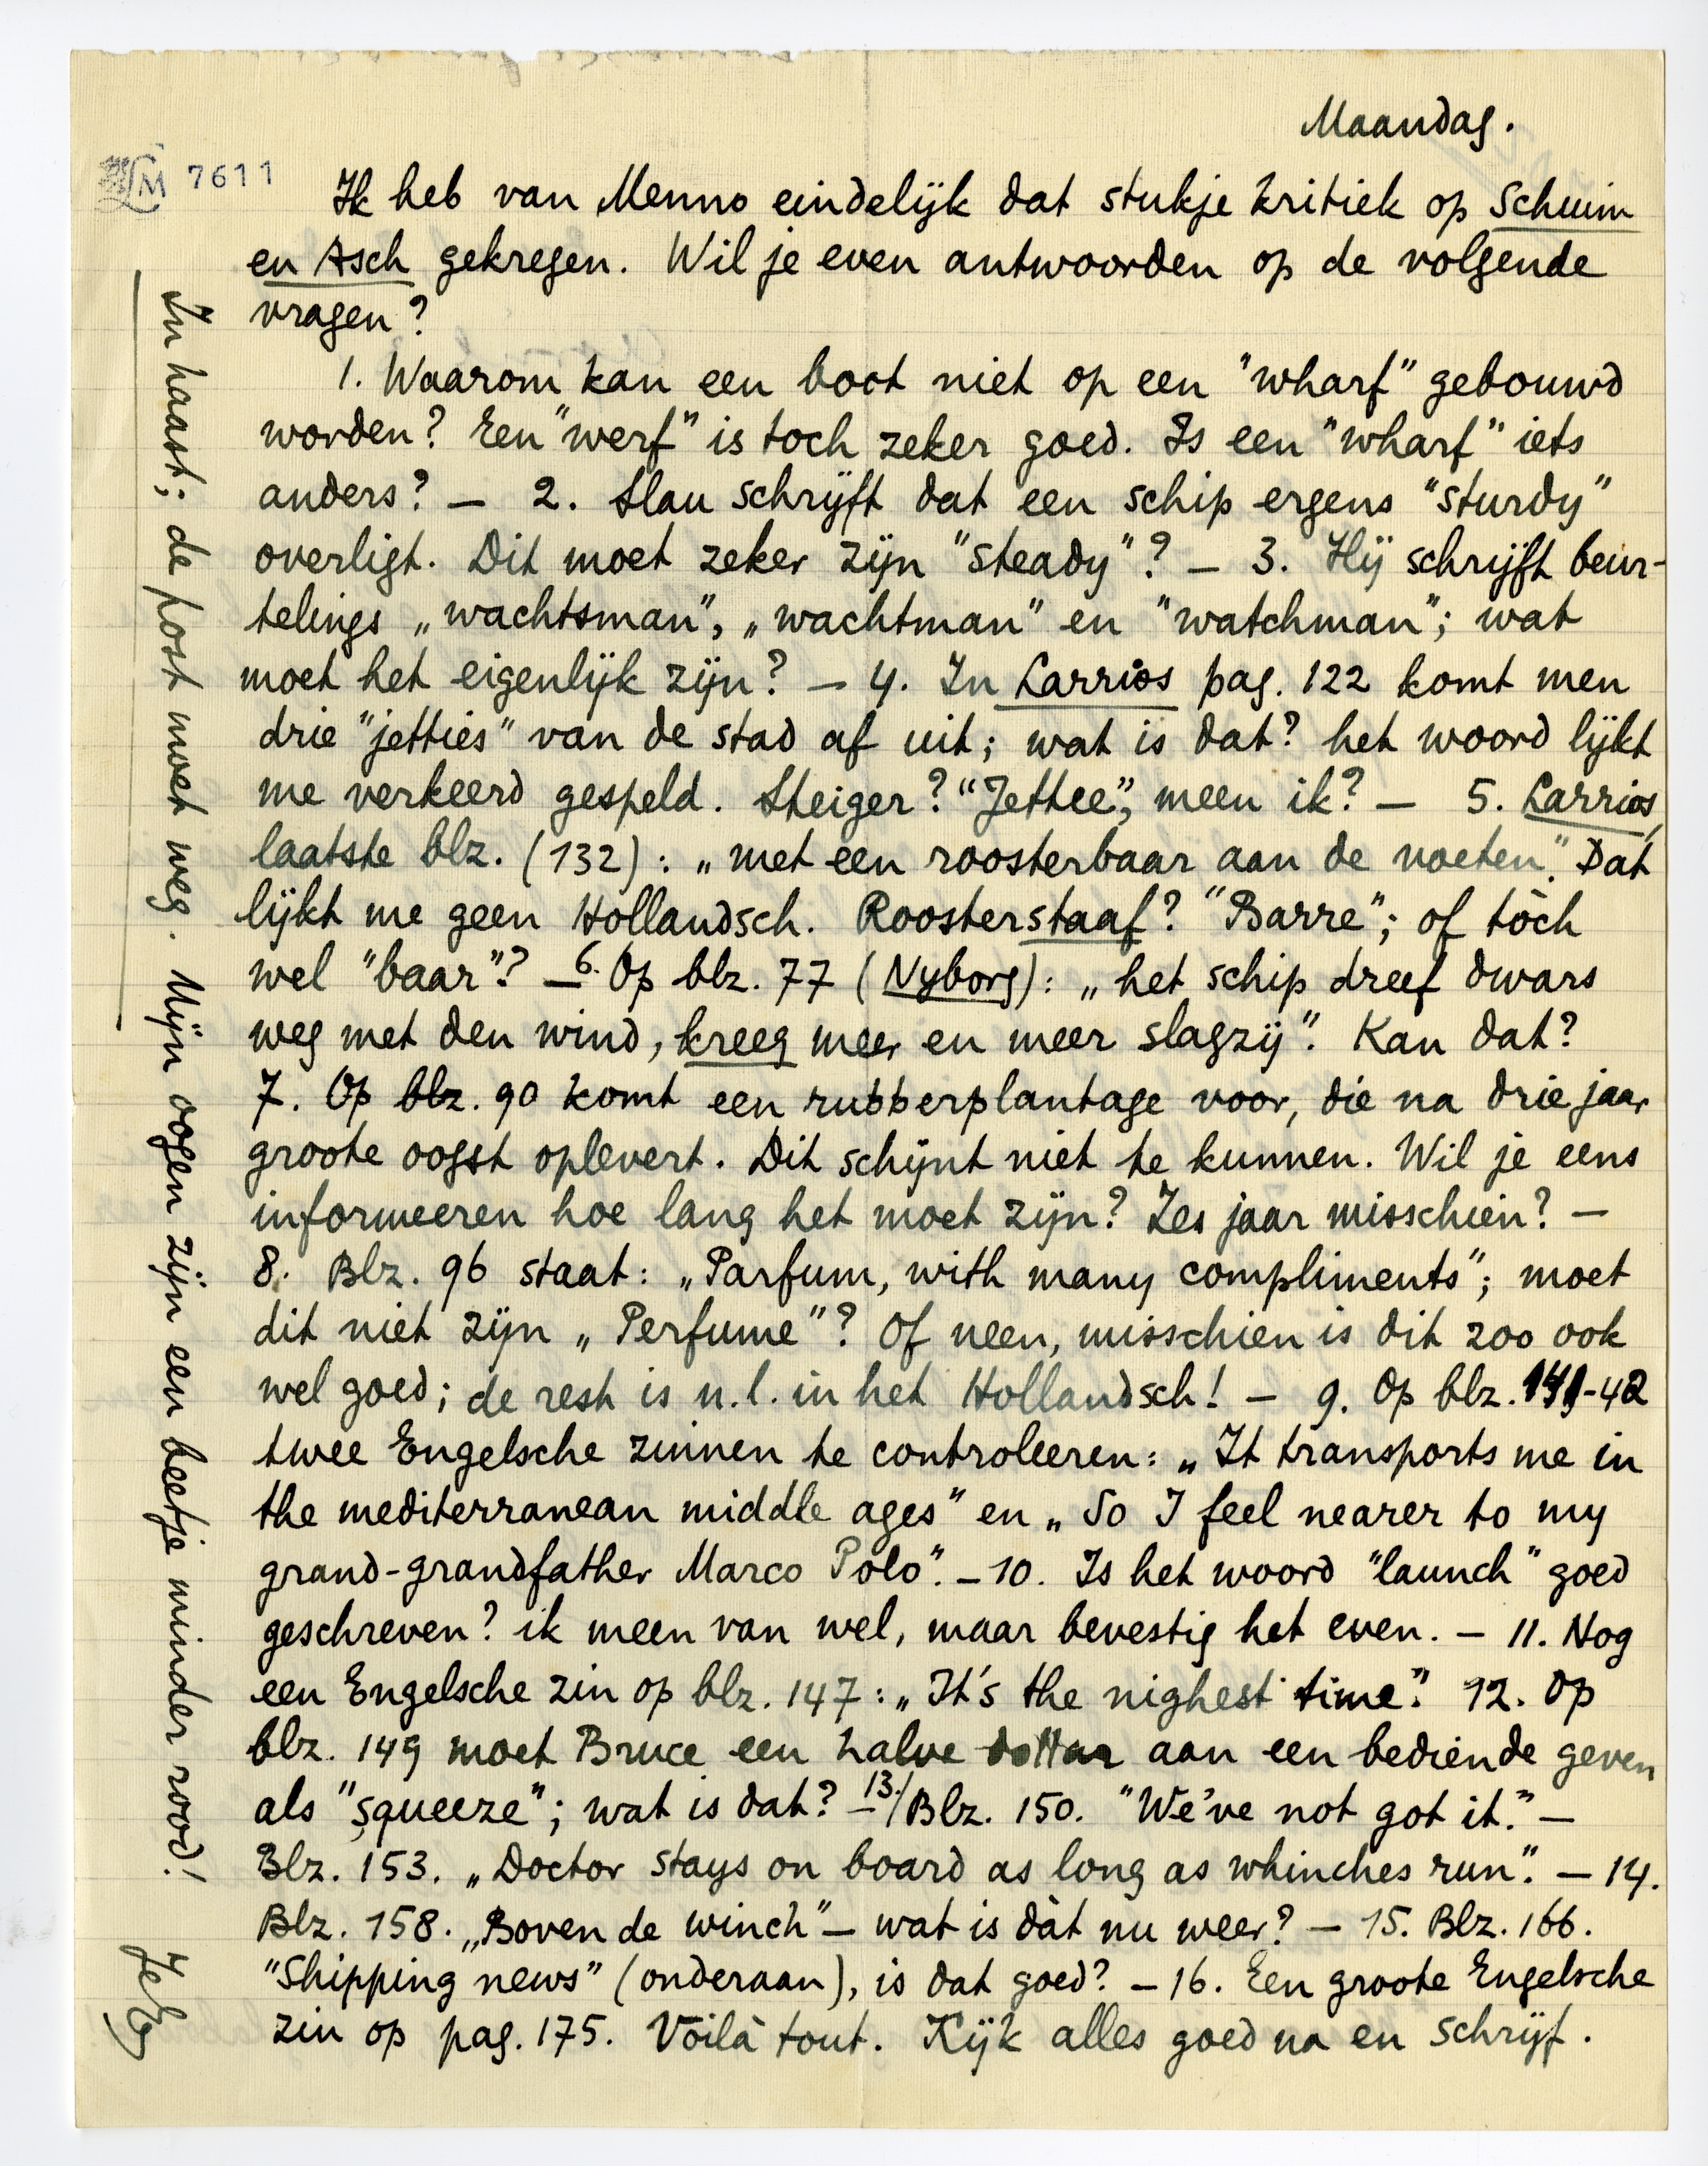 Maandag.
LM 7611
Ik heb van Menno eindelijk dat stukje kritiek op Schuim
en Asch gekregen. Wil je even antwoorden op de volgende
vragen?
1. Waarom kan een boot niet op een "wharf" gebouwd
worden? Een "werf" is toch zeker goed. Is een "wharf" iets
anders? — 2. Slau schrijft dat een schip ergens "sturdy"
overligt. Dit moet zeker zijn "steady"? — 3. Hij schrijft beur-
telings „wachtsman”, „wachtman” en "watchman"; wat
moet het eigenlijk zijn? — 4. In Larrios pag. 122 komt men
drie "jetties" van de stad af uit; wat is dat? het woord lijkt
me verkeerd gespeld. Steiger? "Jettee", meen ik? — 5. Larrios,
laatste blz. (132): „met een roosterbaar aan de voeten." Dat
lijkt me geen Hollandsch. Roosterstaaf? "Barre"; of tòch
wel "baar"? — 6. Op blz. 77 (Nyborg): „het schip dreef dwars
weg met den wind, kreeg meer en meer slagzij". Kan dat?
7. Op blz. 90 komt een rubberplantage voor, die na drie jaar
groote oogst oplevert. Dit schijnt niet te kunnen. Wil je eens
informeeren hoe lang het moet zijn? Zes jaar misschien? —
8. Blz. 96 staat: „Parfum, with many compliments"; moet
dit niet zijn „Perfume"? Of neen, misschien is dit zoo ook
wel goed; de rest is n.l. in het Hollandsch! — 9. Op blz. 141-42
twee Engelsche zinnen te controleeren: „It transports me in
the mediterranean middle ages" en „So I feel nearer to my
grand-grandfather Marco Polo". — 10. Is het woord "launch" goed
geschreven? ik meen van wel, maar bevestig het even. — 11. Nog
een Engelsche zin op blz. 147: „It's the nighest time". 12. Op
blz. 149 moet Bruce een halve dollar aan een bediende geven
als "squeeze"; wat is dat? — 13./ Blz. 150. "We've not got it." —
Blz. 153. „Doctor stays on board as long as whinches run". — 14.
Blz. 158. „Boven de winch" — wat is dàt nu weer? — 15. Blz. 166.
"Shipping news" (onderaan), is dat goed? — 16. Een groote Engelsche
zin op pag. 175. Voilà tout. Kijk alles goed na en schrijf.
In haast; de post moet weg. Mijn oogen zijn een beetje minder rood!